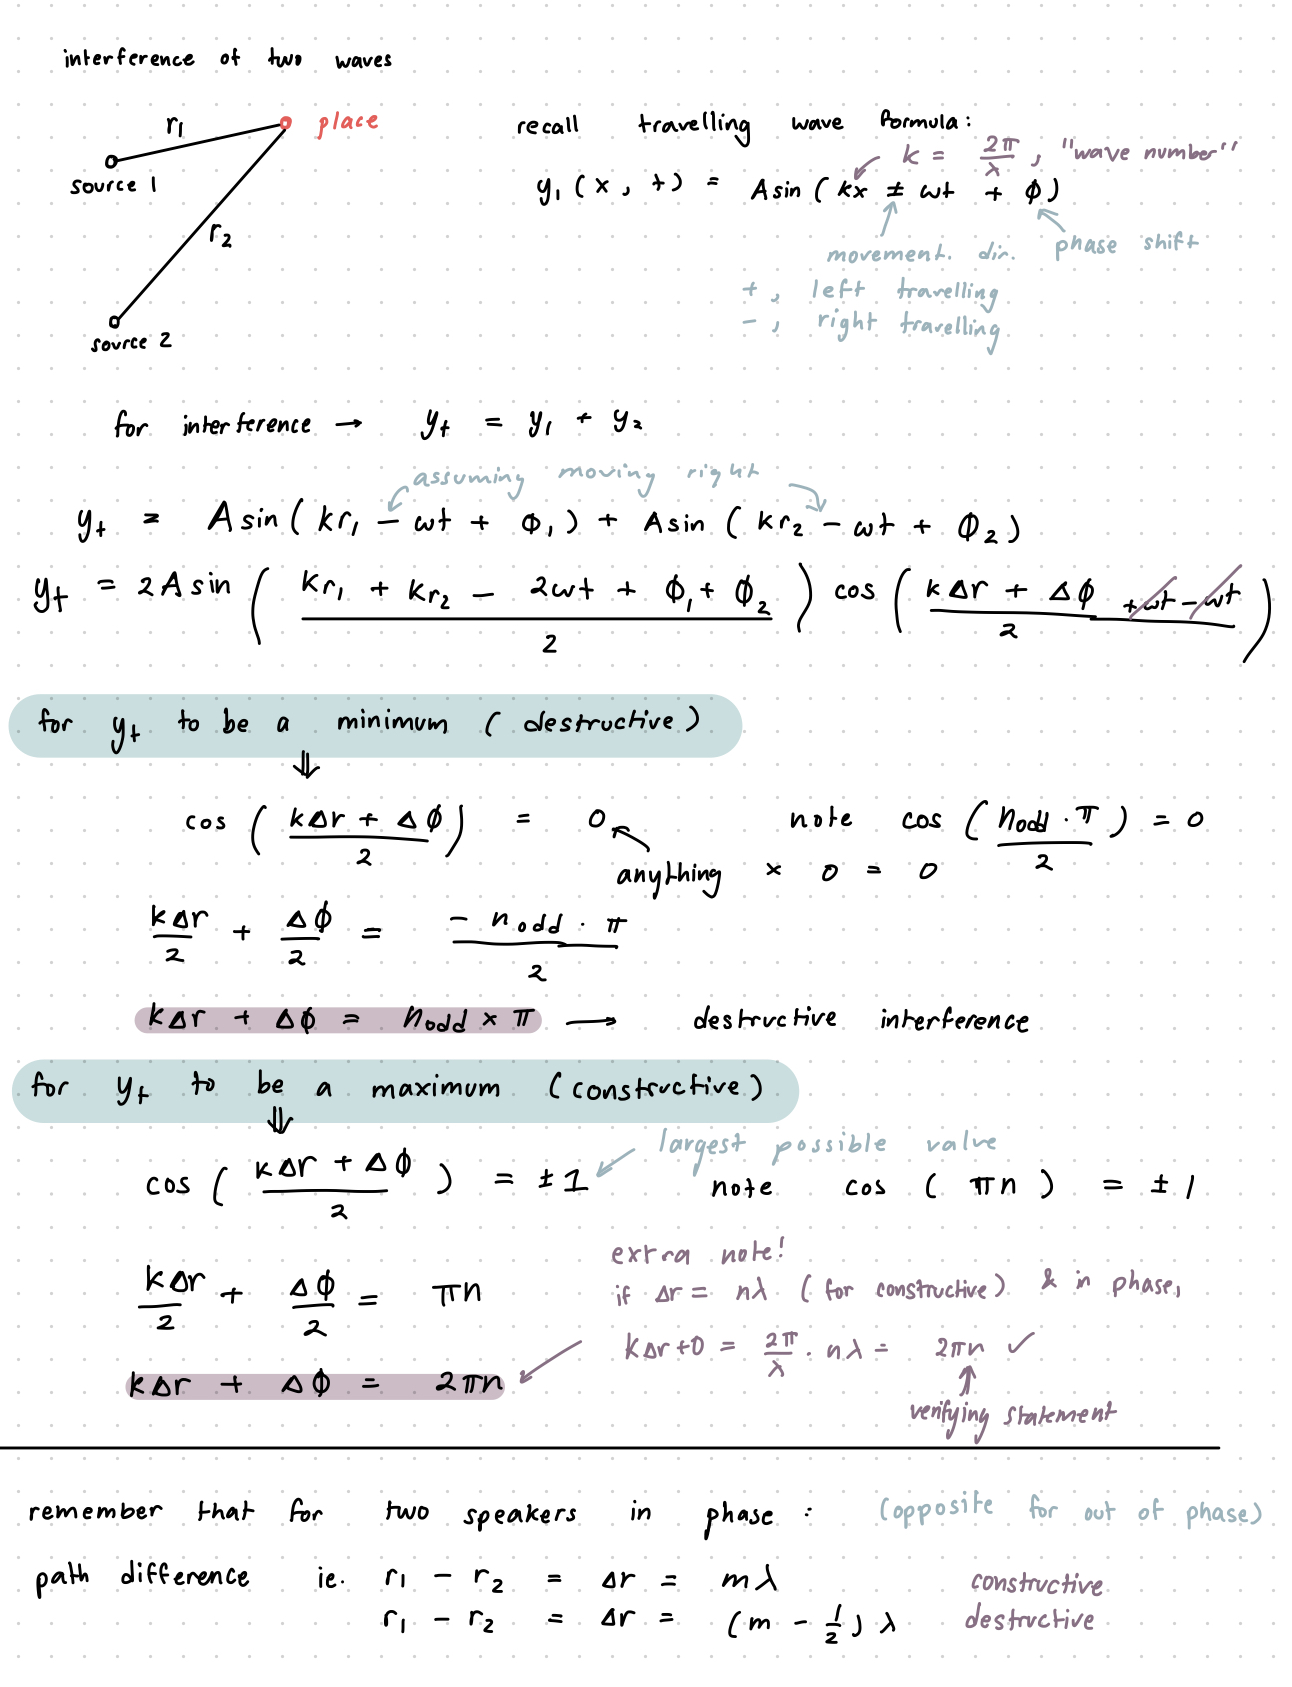 interference of two waves
r₁
place
source 1
r₂
source 2
recall travelling wave formula:
k = 2π/λ, "wave number"
y₁(x, t) = Asin(kx ± ωt + ϕ)
movement. dir.
phase shift
+, left travelling
-, right travelling
for interference → yₜ = y₁ + y₂
assuming moving right
yₜ = Asin(kr₁ - ωt + ϕ₁) + Asin(kr₂ - ωt + ϕ₂)
yₜ = 2Asin((kr₁ + kr₂ - 2ωt + ϕ₁ + ϕ₂)/2) cos((kΔr + Δϕ +ωt - ωt)/2)
for yₜ to be a minimum (destructive)
⇓
cos((kΔr + Δϕ)/2) = 0
note cos((n_odd · π)/2) = 0
anything × 0 = 0
kΔr/2 + Δϕ/2 = (- n_odd · π)/2
kΔr + Δϕ = n_odd × π → destructive interference
for yₜ to be a maximum (constructive)
⇓
largest possible value
cos((kΔr + Δϕ)/2) = ±1
note cos(πn) = ±1
kΔr/2 + Δϕ/2 = πn
extra note!
if Δr = nλ (for constructive) & in phase,
kΔr+0 = 2π/λ · nλ = 2πn ✓
verifying statement
kΔr + Δϕ = 2πn
remember that for two speakers in phase : (opposite for out of phase)
path difference ie. r₁ - r₂ = Δr = mλ constructive
r₁ - r₂ = Δr = (m - 1/2)λ destructive